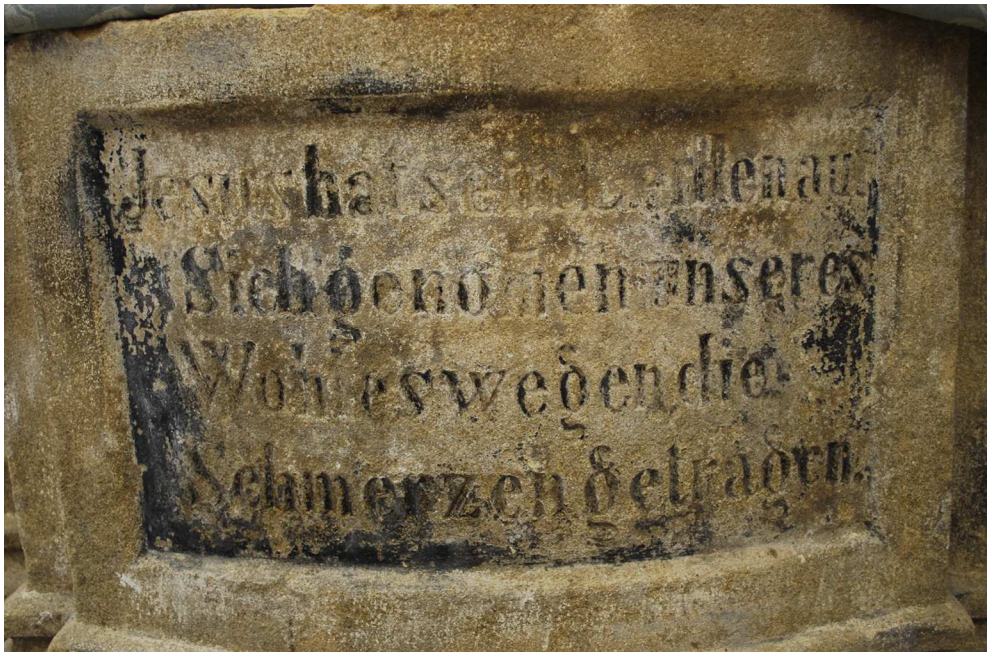 Jesus hat sein Leiden auf
Sich genomen unseres
Wohles wegen die
Schmerzen getragen.